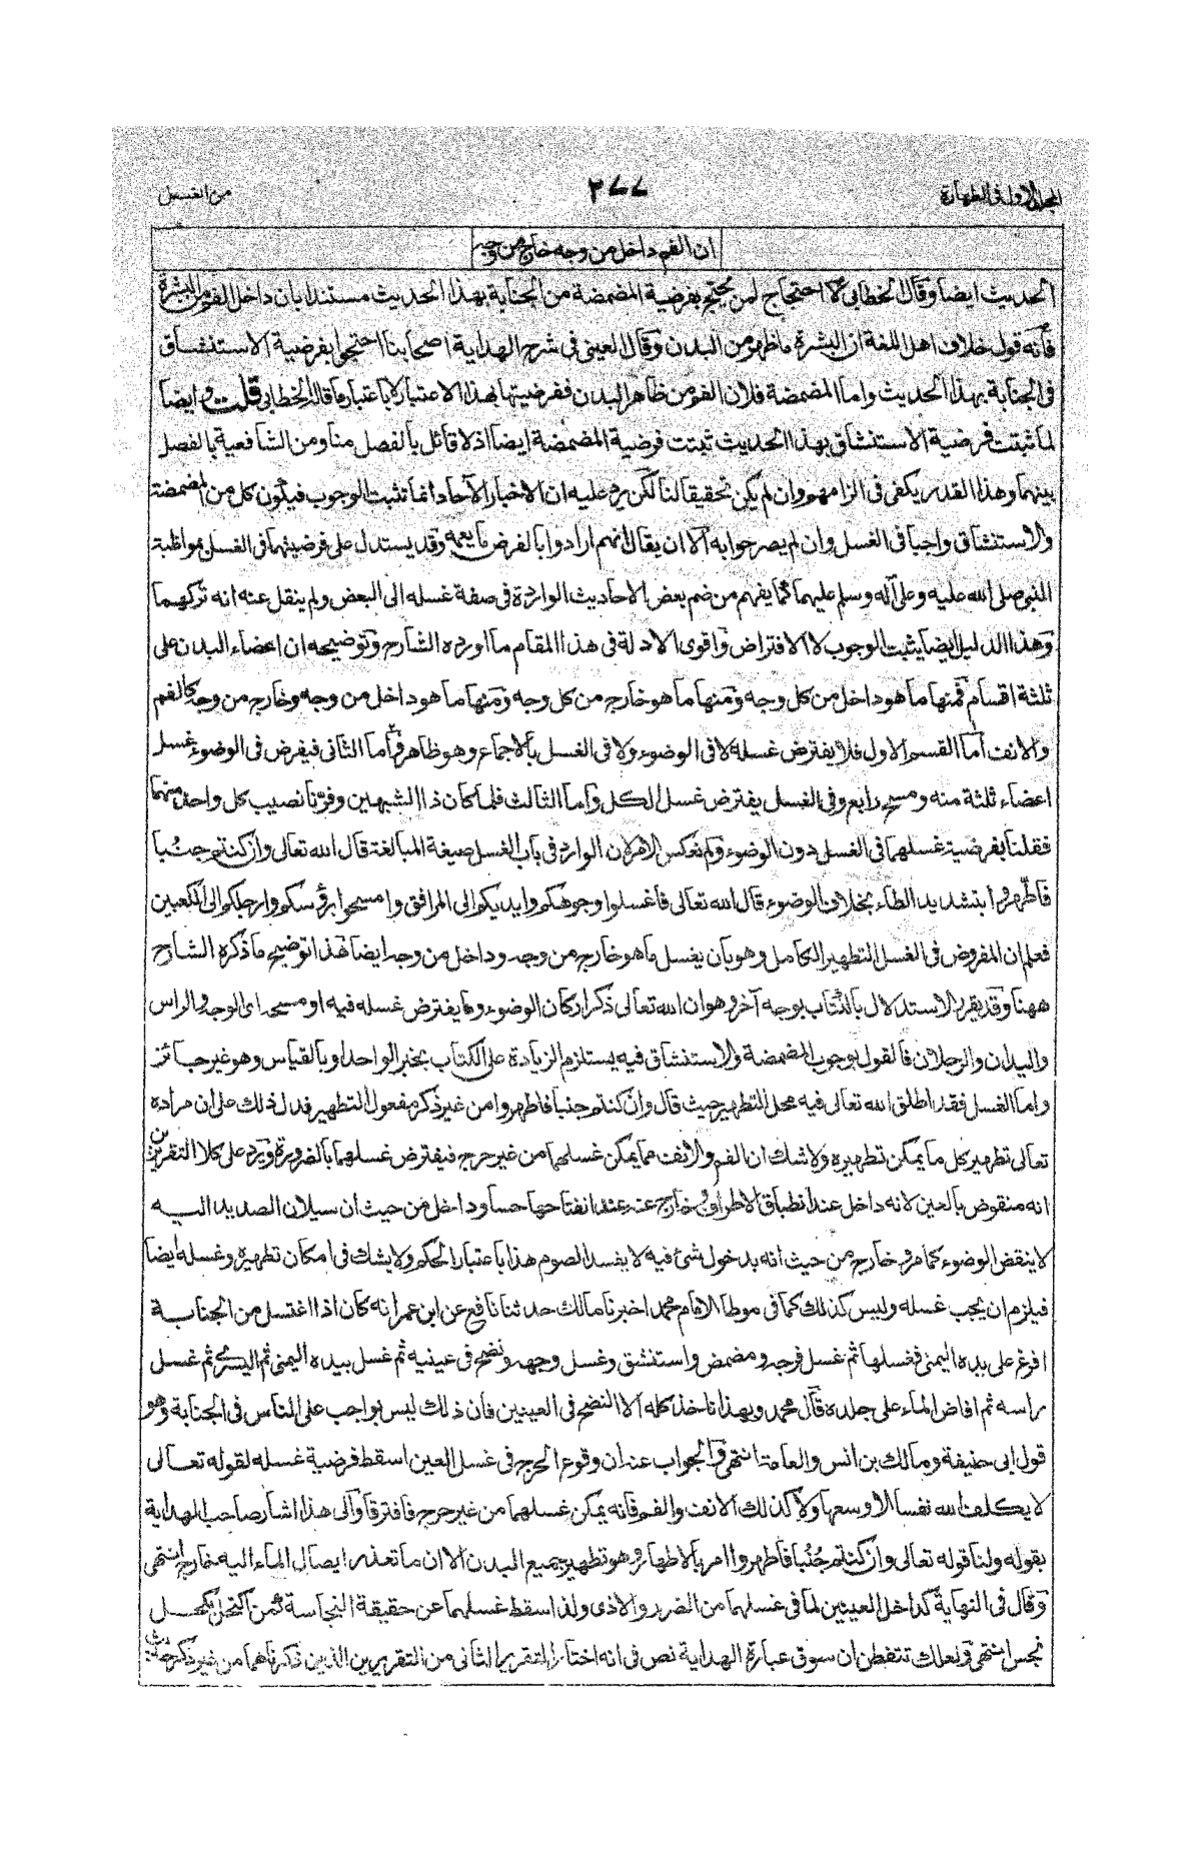 المجلد الاول فى الطهارة
٢٧٧
من الغسل
ان الفم داخل من وجه خارج من وجه
الحديث ايضا وقال الخطابى لا احتجاج لمن يحتج بفرضية المضمضة من الجنابة بهذا الحديث مستندا بان داخل الفم من البشرة
فانه قول خلاف اهل اللغة ان البشرة ما ظهر من البدن وقال العينى فى شرح الهداية اصحابنا احتجوا بفرضية الاستنشاق
فى الجنابة بهذا الحديث واما المضمضة فلان الفم من ظاهر البدن ففرضيتها بهذا الاعتبار لا باعتبار ما قاله الخطابى قلت وايضا
لما ثبتت فرضية الاستنشاق بهذا الحديث ثبتت فرضية المضمضة ايضا اذ لا قائل بالفصل منا ومن الشافعية بالفصل
بينهما وهذا القدر يكفى فى الزامهم وان لم يكن تحقيقا لنا لكن يرد عليه ان الاخبار الآحاد انما تثبت الوجوب فيكون كل من المضمضة
والاستنشاق واجبا فى الغسل وان لم يصرحوا به الا ان يقال انهم ارادوا بالفرض ما يعمه وقد يستدل على فرضيتهما فى الغسل بمواظبة
النبى صلى الله عليه وعلى آله وسلم عليهما كما يفهم من ضم بعض الاحاديث الواردة فى صفة غسله الى البعض ولم ينقل عنه انه تركهما
وهذا الدليل ايضا يثبت الوجوب لا الافتراض واقوى الادلة فى هذا المقام ما اورده الشارح وتوضيحه ان اعضاء البدن على
ثلثة اقسام فمنها ما هو داخل من كل وجه ومنها ما هو خارج من كل وجه ومنها ما هو داخل من وجه وخارج من وجه كالفم
والانف اما القسم الاول فلا يفترض غسله لا فى الوضوء ولا فى الغسل بالاجماع وهو ظاهر واما الثانى فيفرض فى الوضوء غسل
اعضاء ثلثة منه ومسح رابع وفى الغسل يفترض غسل الكل واما الثالث فلما كان ذا الشبهين وفرنا نصيب كل واحد منهما
فقلنا بفرضية غسلهما فى الغسل دون الوضوء ولم نعكس الامر لان الوارد فى باب الغسل صيغة المبالغة قال الله تعالى وان كنتم جنبا
فاطهروا بتشديد الطاء بخلاف الوضوء قال الله تعالى فاغسلوا وجوهكم وايديكم الى المرافق وامسحوا برؤسكم وارجلكم الى الكعبين
فعلم ان المفروض فى الغسل التطهير الكامل وهو بان يغسل ما هو خارج من وجه وداخل من وجه ايضا هذا توضيح ما ذكره الشارح
ههنا وقد يقرر الاستدلال بالكتاب بوجه آخر وهو ان الله تعالى ذكر اركان الوضوء وما يفترض غسله فيه او مسحه اى الوجه والراس
واليدان والرجلان فالقول بوجوب المضمضة والاستنشاق فيه يستلزم الزيادة على الكتاب بخبر الواحد او بالقياس وهو غير جائز
واما الغسل فقد اطلق الله تعالى فيه محل التطهير حيث قال وان كنتم جنبا فاطهروا من غير ذكر مفعول التطهير فدل ذلك على ان مراده
تعالى تطهير كل ما يمكن تطهيره ولا شك ان الفم والانف مما يمكن غسلهما من غير حرج فيفترض غسلهما بالضرورة ويرد على كلا التقريرين
انه منقوض بالعين لانه داخل عند انطباق الاطراف وخارج عنه عند انفتاحها حسا وداخل من حيث ان سيلان الصديد اليه
لا ينقض الوضوء كما مر وخارج من حيث انه بدخول شئ فيه لا يفسد الصوم هذا باعتبار الحكم ولا يشك فى امكان تطهيره وغسله ايضا
فيلزم ان يجب غسله وليس كذلك كما فى موطا الامام محمد اخبرنا مالك حدثنا نافع عن ابن عمر انه كان اذا اغتسل من الجنابة
افرغ على يده اليمنى فغسلها ثم غسل فرجه ومضمض واستنشق وغسل وجهه ونضح فى عينيه ثم غسل بيده اليمنى ثم اليسرى ثم غسل
راسه ثم افاض الماء على جلده قال محمد وبهذا ناخذ كله الا النضح فى العينين فان ذلك ليس بواجب على الناس فى الجنابة وهو
قول ابى حنيفة ومالك بن انس والعامة انتهى والجواب عنه ان وقوع الحرج فى غسل العين اسقط فرضية غسله لقوله تعالى
لا يكلف الله نفسا الا وسعها ولا كذلك الانف والفم فانه يمكن غسلهما من غير حرج فافترقا والى هذا اشار صاحب الهداية
بقوله ولنا قوله تعالى وان كنتم جنبا فاطهروا امر بالاطهار وهو تطهير جميع البدن الا ان ما تعذر ايصال الماء اليه خارج انتهى
وقال فى النهاية كداخل العينين لما فى غسلهما من الضرر والاذى ولذا سقط غسلهما عن حقيقة النجاسة كمن اكتحل بكحل
نجس انتهى ولعلك تتفطن ان سوق عبارة الهداية نص فى انه اختار التقرير الثانى من التقريرين الذين ذكرناهما من غير ذكر حديث